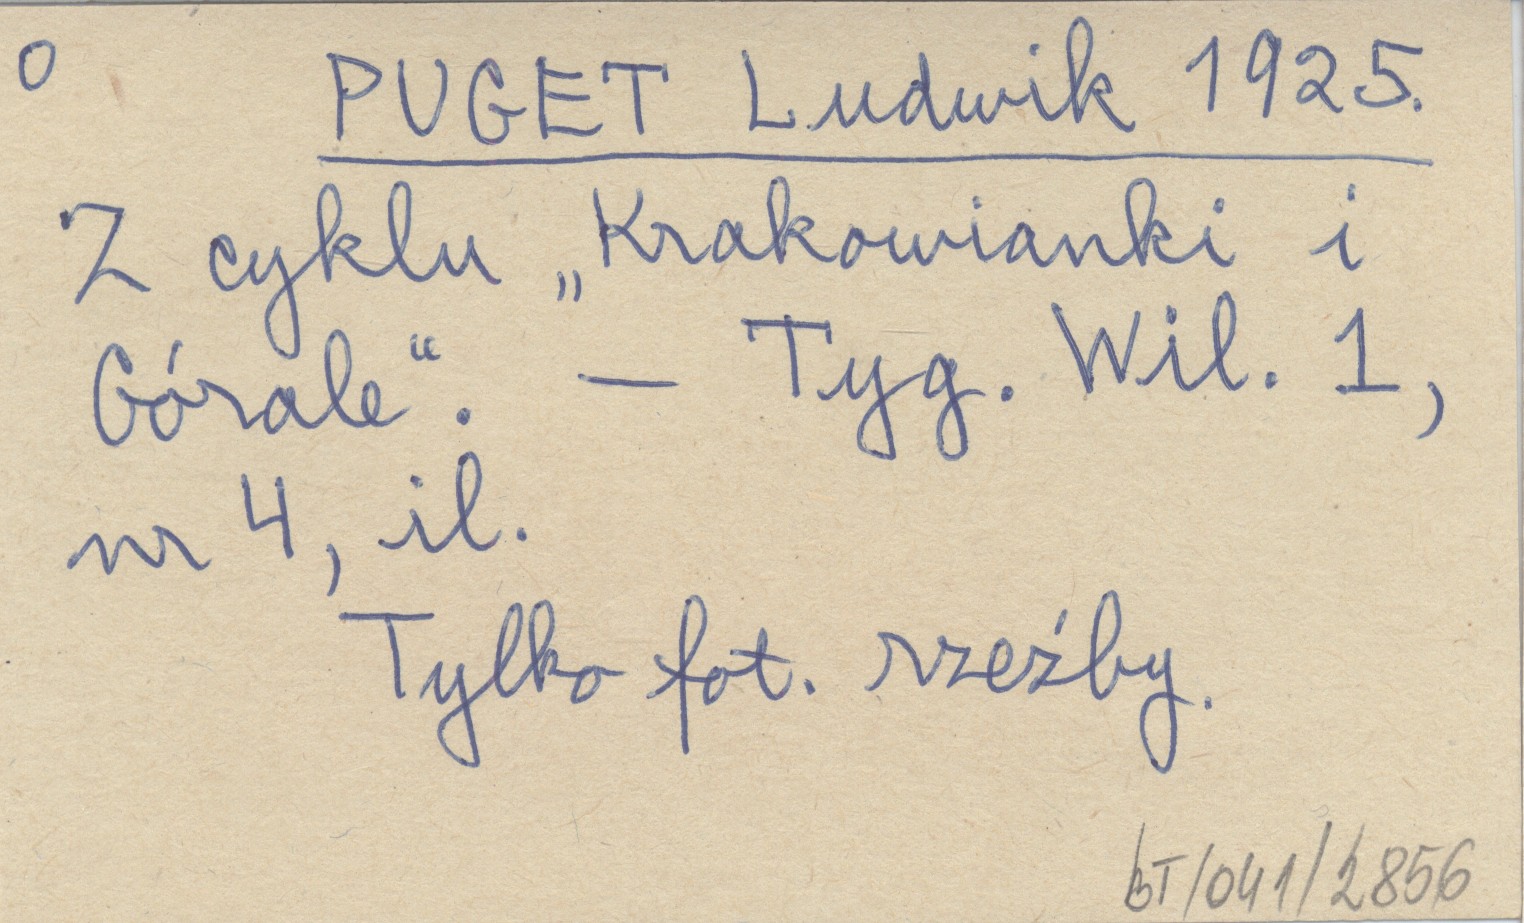 O PUGET Ludwik 1925.
Z cyklu „Krakowianki i
Górale“. — Tyg. Wil. 1,
nr 4, il.
Tylko fot. rzeźby.
bT/041/2856